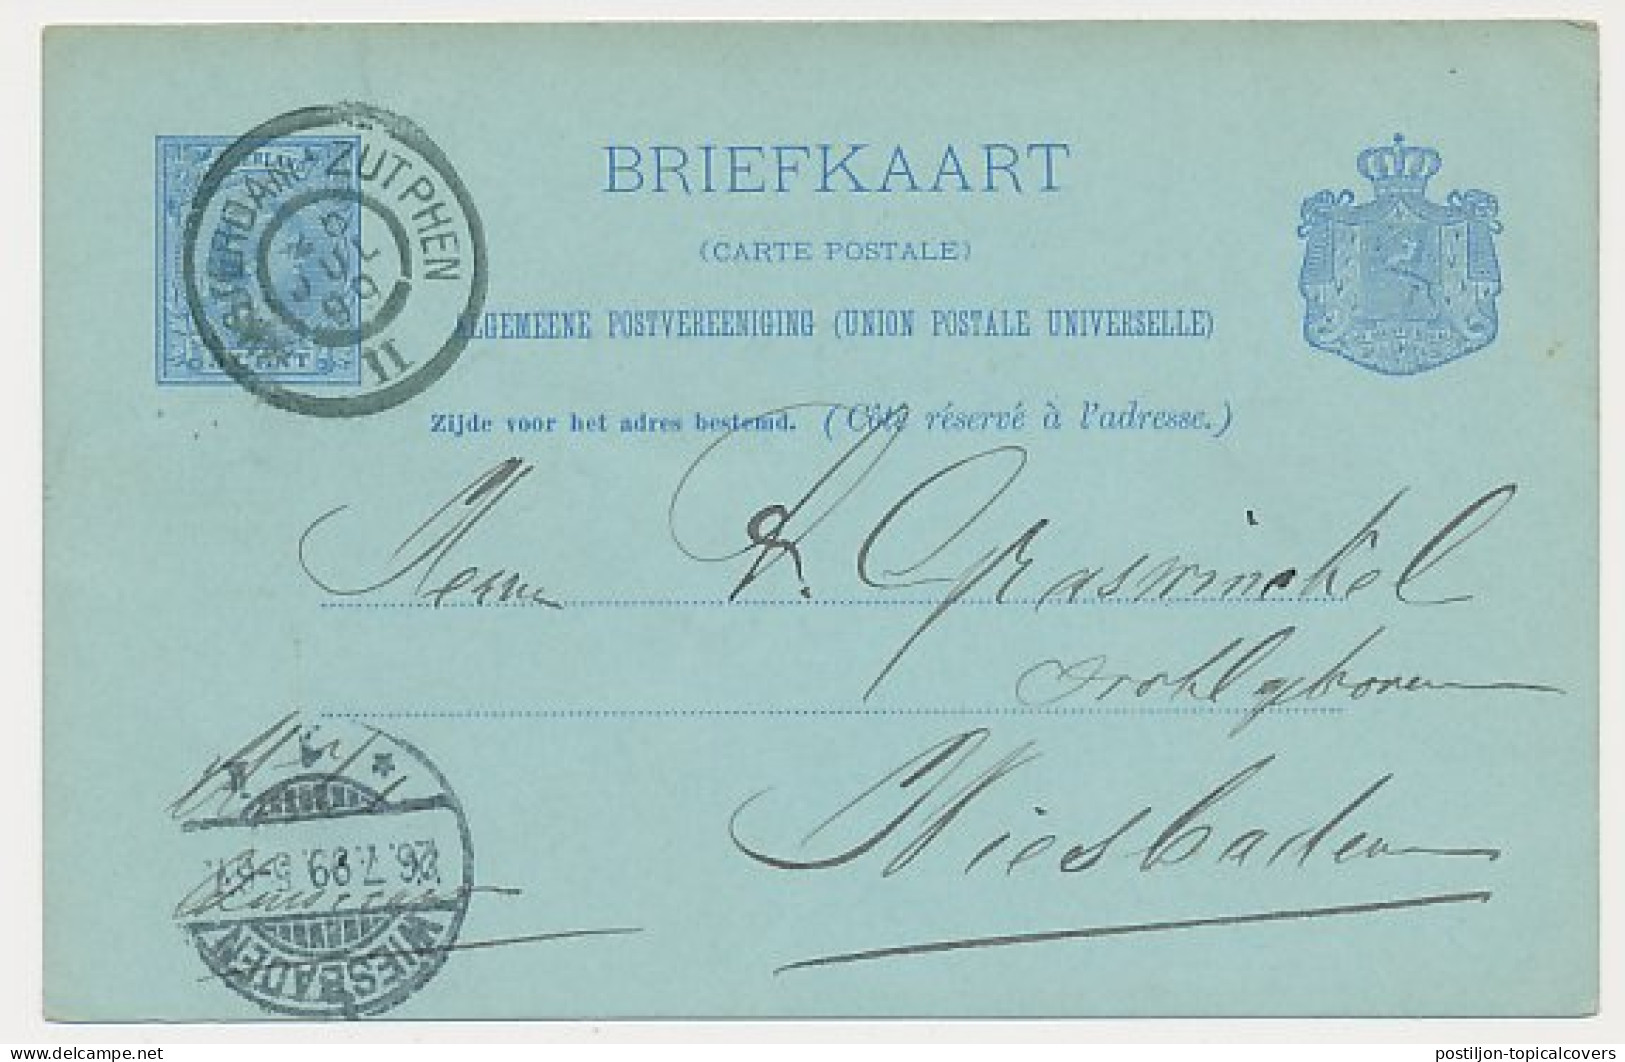 BRIEFKAART
(CARTE POSTALE)
ALGEMEENE POSTVEREENIGING (UNION POSTALE UNIVERSELLE)
Zijde voor het adres bestemd. (Côté réservé à l'adresse.)
ZUTPHEN
JUL
99
II
CENT
Herrn D. Graswinckel
Wiesbaden
26.7.99. 5-6
WIESBADEN
delcampe.net
postiljon-topicalcovers